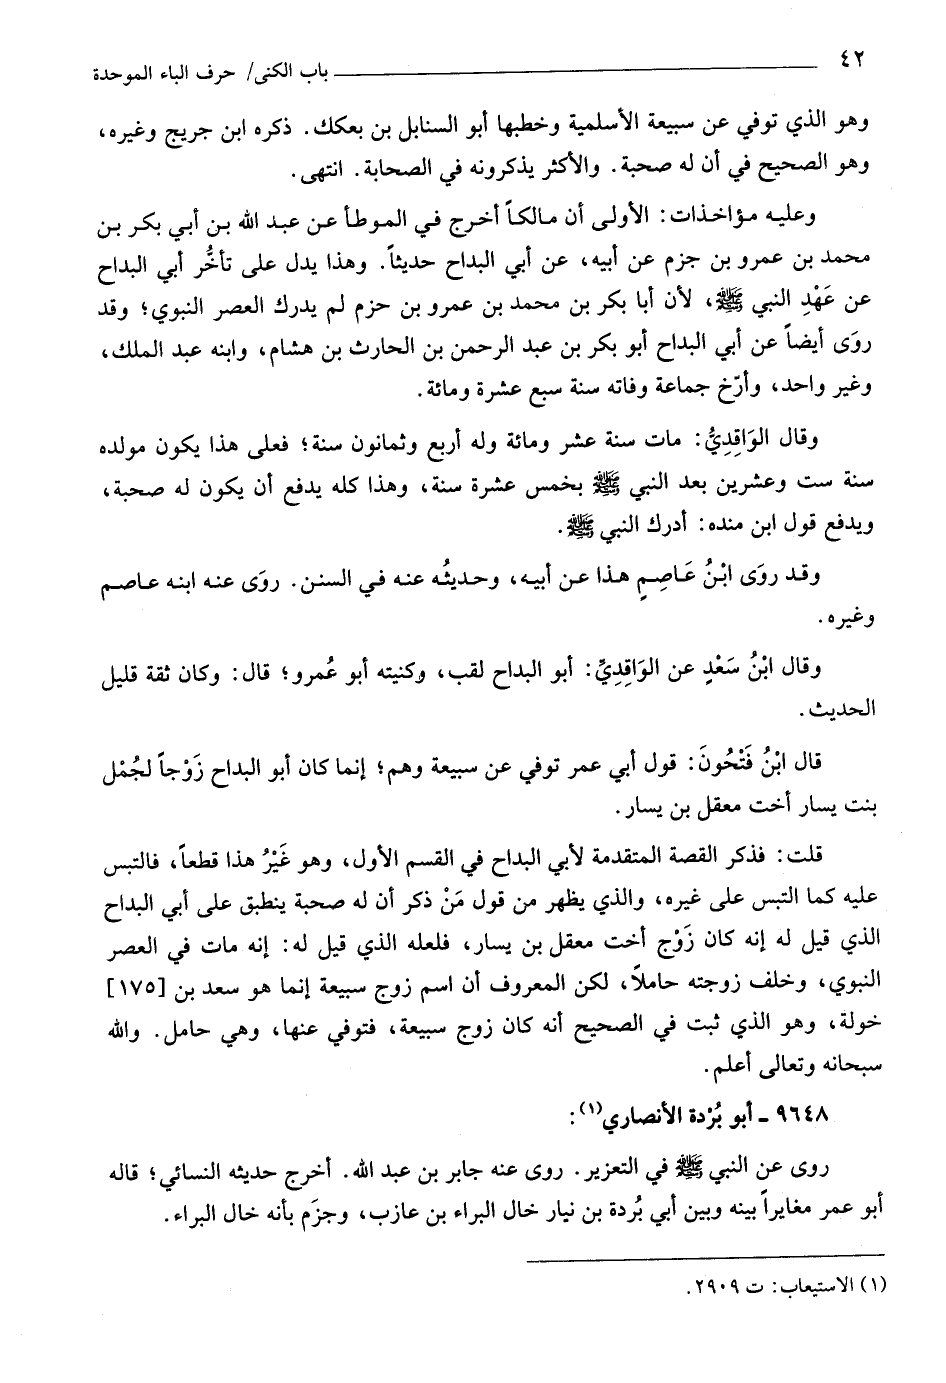 ٤٢ باب الكنى/ حرف الباء الموحدة
وهو الذي توفي عن سبيعة الأسلمية وخطبها أبو السنابل بن بعكك. ذكره ابن جريج وغيره،
وهو الصحيح في أن له صحبة. والأكثر يذكرونه في الصحابة. انتهى.
وعليه مؤاخذات: الأولى أن مالكاً أخرج في الموطأ عن عبد الله بن أبي بكر بن
محمد بن عمرو بن جزم عن أبيه، عن أبي البداح حديثاً. وهذا يدل على تأخُّر أبي البداح
عن عَهْدِ النبي ﷺ، لأن أبا بكر بن محمد بن عمرو بن حزم لم يدرك العصر النبوي؛ وقد
روَى أيضاً عن أبي البداح أبو بكر بن عبد الرحمن بن الحارث بن هشام، وابنه عبد الملك،
وغير واحد، وأرّخ جماعة وفاته سنة سبع عشرة ومائة.
وقال الوَاقِدِيُّ: مات سنة عشر ومائة وله أربع وثمانون سنة؛ فعلى هذا يكون مولده
سنة ست وعشرين بعد النبي ﷺ بخمس عشرة سنة، وهذا كله يدفع أن يكون له صحبة،
ويدفع قول ابن منده: أدرك النبي ﷺ.
وقد روَى ابْنُ عَاصِمٍ هذا عن أبيه، وحديثُه عنه في السنن. روَى عنه ابنه عاصم
وغيره.
وقال ابْنُ سَعْدٍ عن الوَاقِدِيِّ: أبو البداح لقب، وكنيته أبو عُمرو؛ قال: وكان ثقة قليل
الحديث.
قال ابْنُ فَتْحُونَ: قول أبي عمر توفي عن سبيعة وهم؛ إنما كان أبو البداح زَوْجاً لجُمْل
بنت يسار أخت معقل بن يسار.
قلت: فذكر القصة المتقدمة لأبي البداح في القسم الأول، وهو غَيْرُ هذا قطعاً، فالتبس
عليه كما التبس على غيره، والذي يظهر من قول مَنْ ذكر أن له صحبة ينطبق على أبي البداح
الذي قيل له إنه كان زَوْج أخت معقل بن يسار، فلعله الذي قيل له: إنه مات في العصر
النبوي، وخلف زوجته حاملاً، لكن المعروف أن اسم زوج سبيعة إنما هو سعد بن [١٧٥]
خولة، وهو الذي ثبت في الصحيح أنه كان زوج سبيعة، فتوفي عنها، وهي حامل. والله
سبحانه وتعالى أعلم.
٩٦٤٨ ـ أبو بُرْدة الأنصاري(١):
روى عن النبي ﷺ في التعزير. روى عنه جابر بن عبد الله. أخرج حديثه النسائي؛ قاله
أبو عمر مغايراً بينه وبين أبي بُردة بن نيار خال البراء بن عازب، وجزَم بأنه خال البراء.
(١) الاستيعاب: ت ٢٩٠٩.